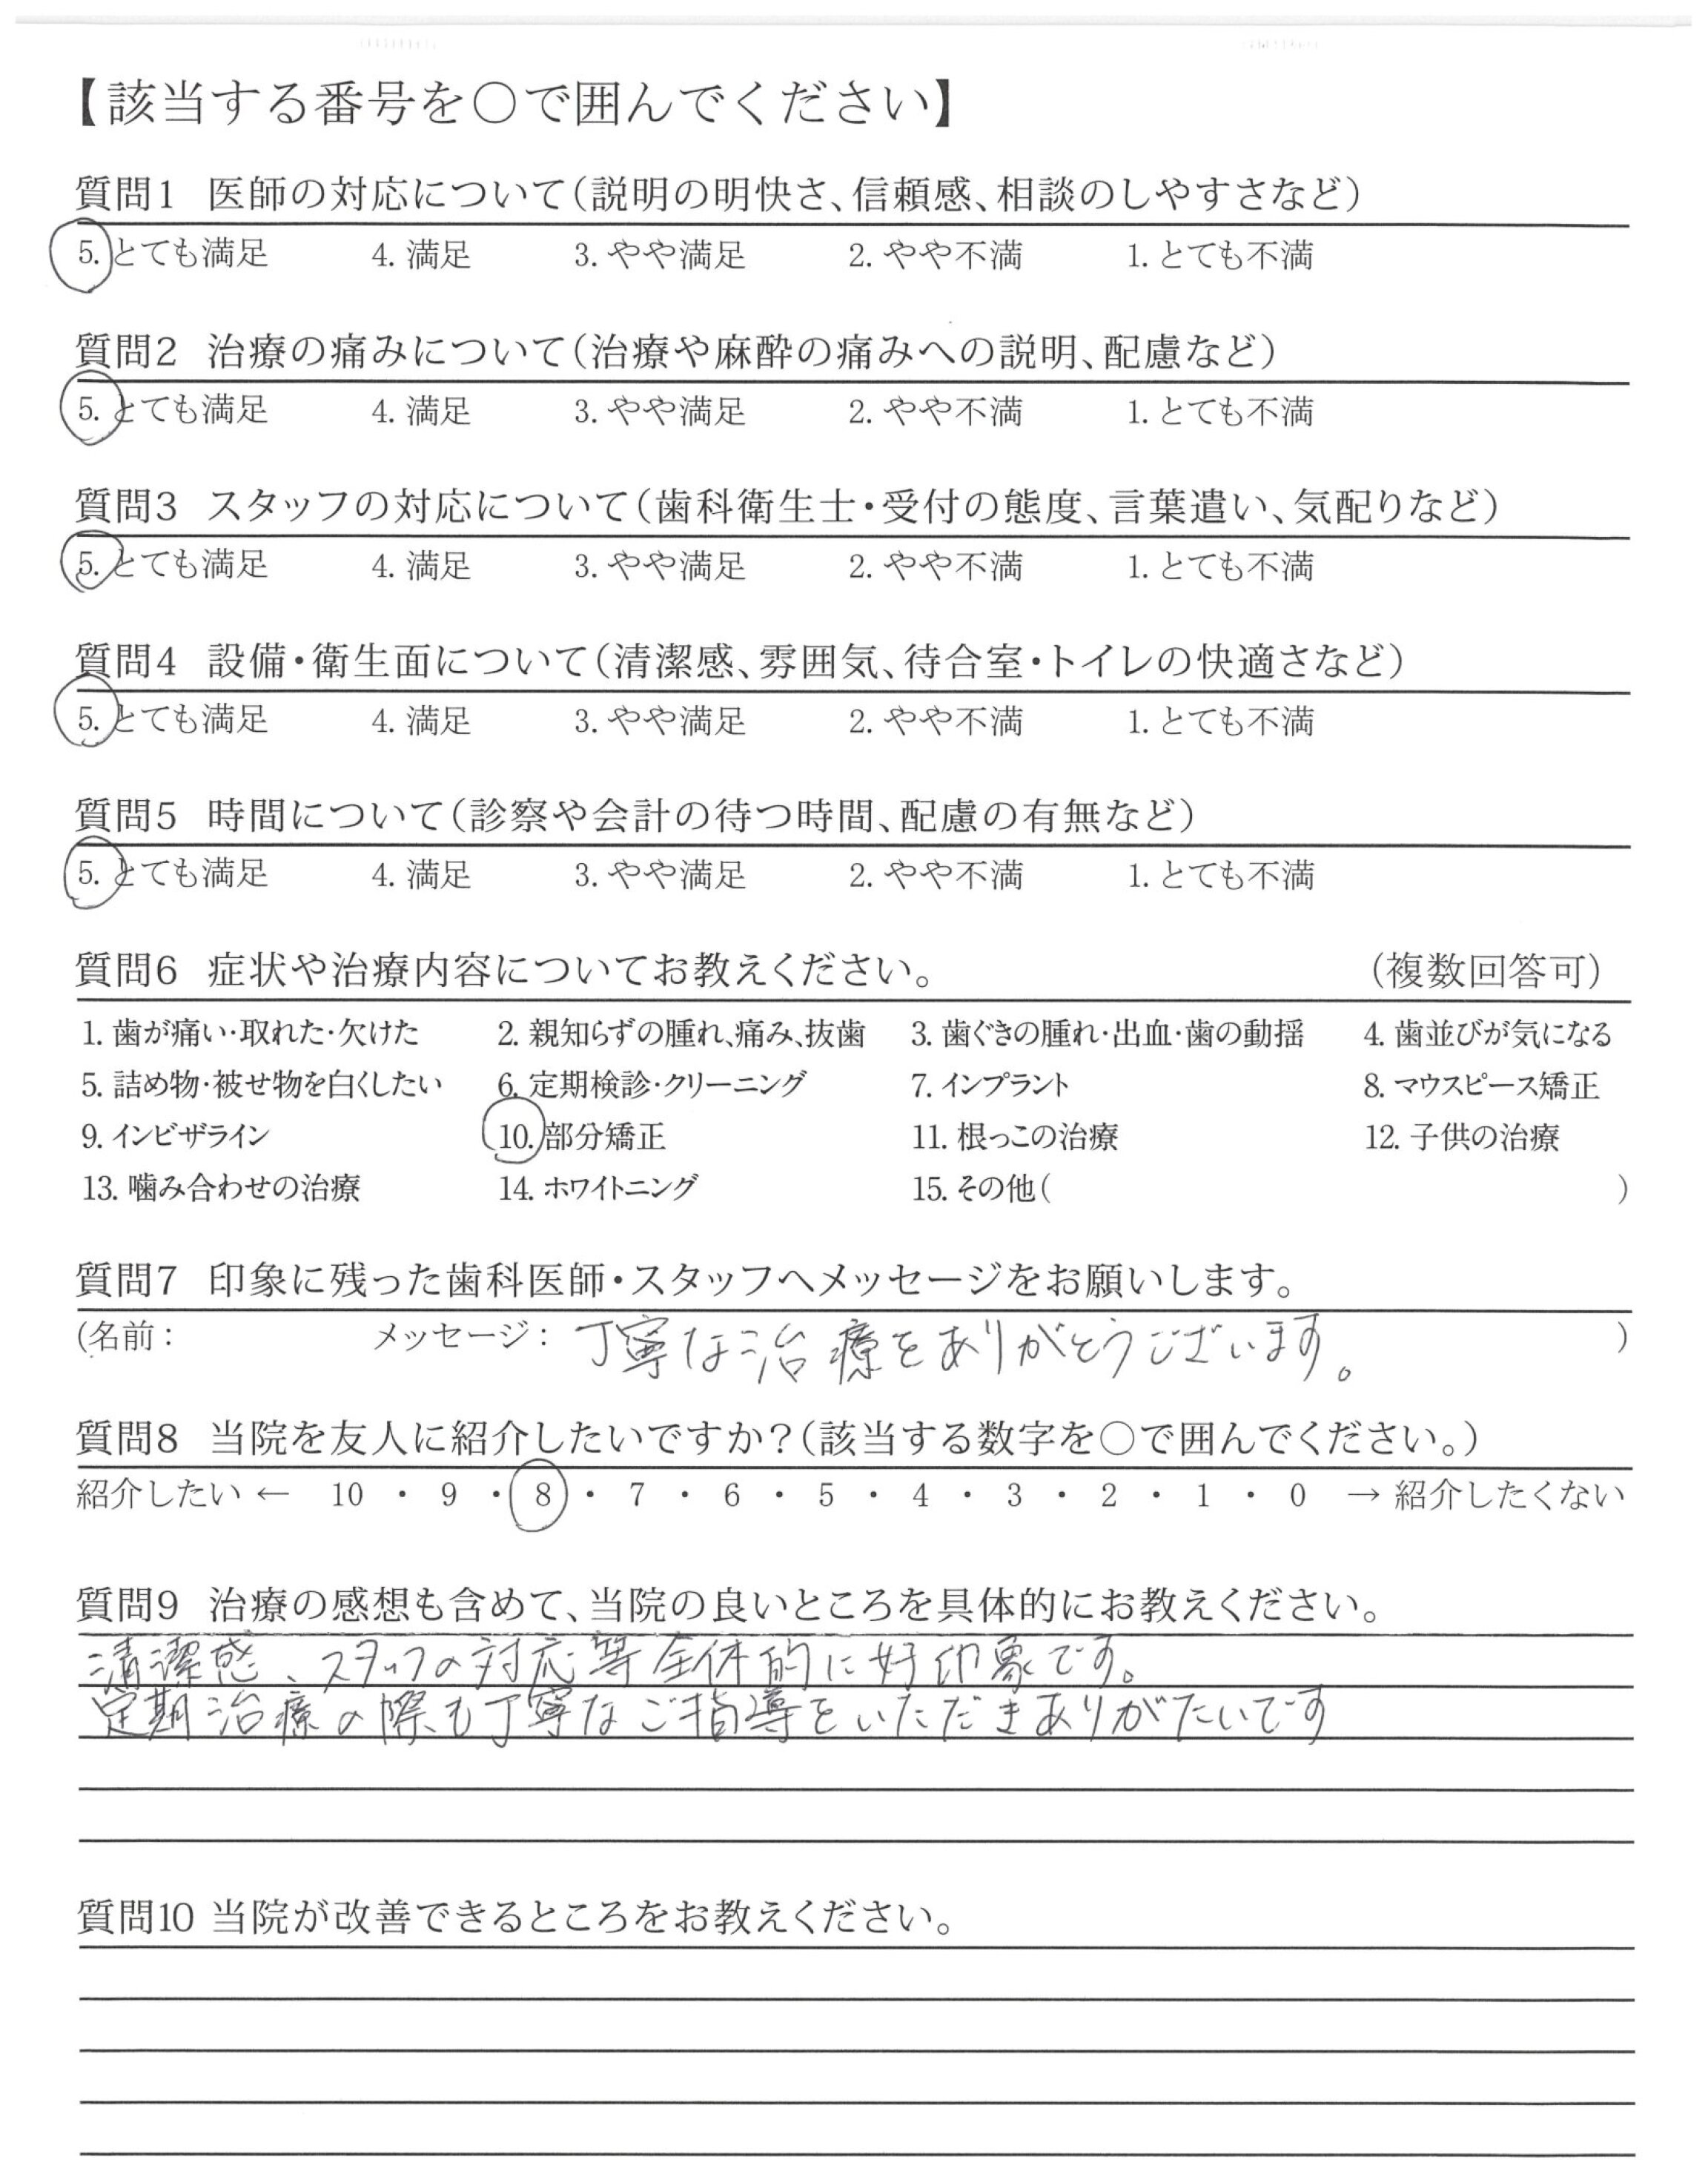 【該当する番号を○で囲んでください】
質問1 医師の対応について(説明の明快さ、信頼感、相談のしやすさなど)
5. とても満足 4. 満足 3. やや満足 2. やや不満 1. とても不満
質問2 治療の痛みについて(治療や麻酔の痛みへの説明、配慮など)
5. とても満足 4. 満足 3. やや満足 2. やや不満 1. とても不満
質問3 スタッフの対応について(歯科衛生士・受付の態度、言葉遣い、気配りなど)
5. とても満足 4. 満足 3. やや満足 2. やや不満 1. とても不満
質問4 設備・衛生面について(清潔感、雰囲気、待合室・トイレの快適さなど)
5. とても満足 4. 満足 3. やや満足 2. やや不満 1. とても不満
質問5 時間について(診察や会計の待つ時間、配慮の有無など)
5. とても満足 4. 満足 3. やや満足 2. やや不満 1. とても不満
質問6 症状や治療内容についてお教えください。 (複数回答可)
1. 歯が痛い・取れた・欠けた 2. 親知らずの腫れ、痛み、抜歯 3. 歯ぐきの腫れ・出血・歯の動揺 4. 歯並びが気になる
5. 詰め物・被せ物を白くしたい 6. 定期検診・クリーニング 7. インプラント 8. マウスピース矯正
9. インビザライン 10. 部分矯正 11. 根っこの治療 12. 子供の治療
13. 噛み合わせの治療 14. ホワイトニング 15. その他( )
質問7 印象に残った歯科医師・スタッフへメッセージをお願いします。
(名前: メッセージ: 丁寧な治療をありがとうございます。 )
質問8 当院を友人に紹介したいですか?(該当する数字を○で囲んでください。)
紹介したい ← 10 ・ 9 ・ 8 ・ 7 ・ 6 ・ 5 ・ 4 ・ 3 ・ 2 ・ 1 ・ 0 → 紹介したくない
質問9 治療の感想も含めて、当院の良いところを具体的にお教えください。
清潔感、スタッフの対応等全体的に好印象です。
定期治療の際も丁寧なご指導をいただきありがたいです
質問10 当院が改善できるところをお教えください。